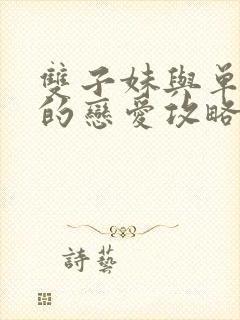 雙子妹與單
的戀愛攻略
詩藝